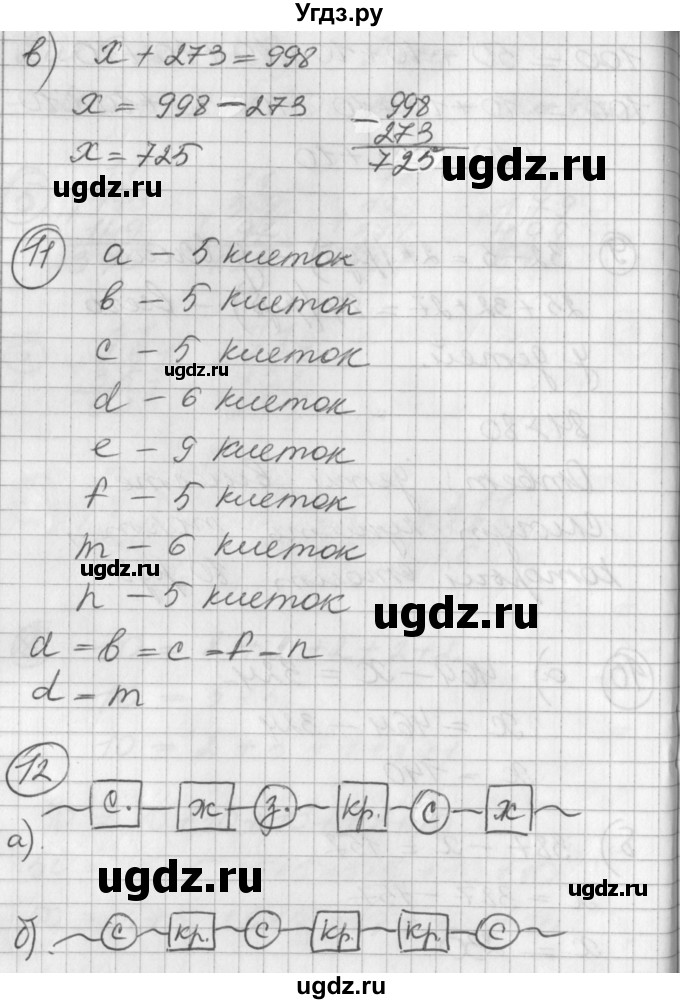 Угдз.ру
в) x + 273 = 998
x = 998 - 273
- 998
273
725
x = 725
ugdz.ru
ugdz.ru
11 a - 5 клеток
в - 5 клеток
c - 5 клеток
ugdz.ru
d - 6 клеток
e - 9 клеток
f - 5 клеток
m - 6 клеток
ugdz.ru
n - 5 клеток
ugdz.ru
d = в = c = f = n
d = m
12
а). с. ж з. кр. с ж
ugdz.ru
ugdz.ru
б). с кр. с кр. кр. с
ugdz.ru